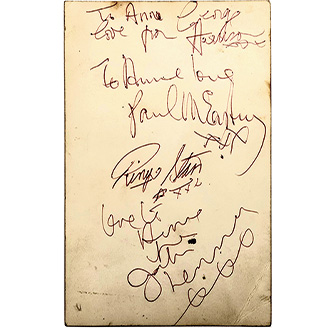 To Anne George
love from Harrison
xxx
To Anne love
Paul McCartney
xxx
Ringo Starr
xxx
love to
Anne
John
Lennon
xxx